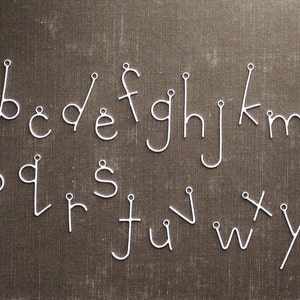 b c d e f g h j k m
q r s t u v w x y